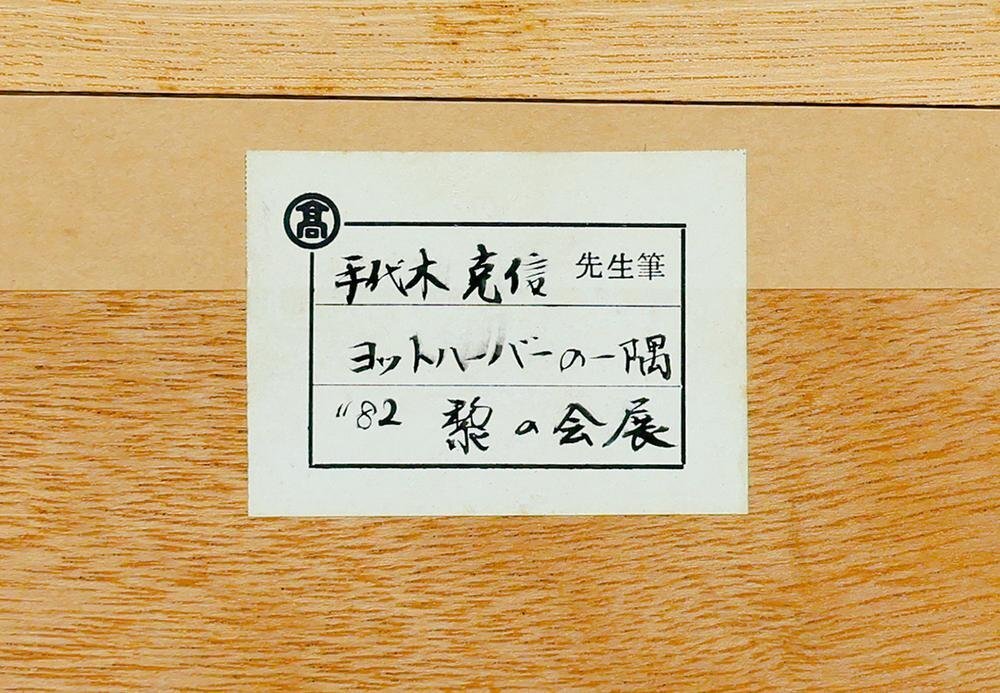 髙
手代木 克信 先生筆
ヨットハーバーの一隅
"82 黎の会展